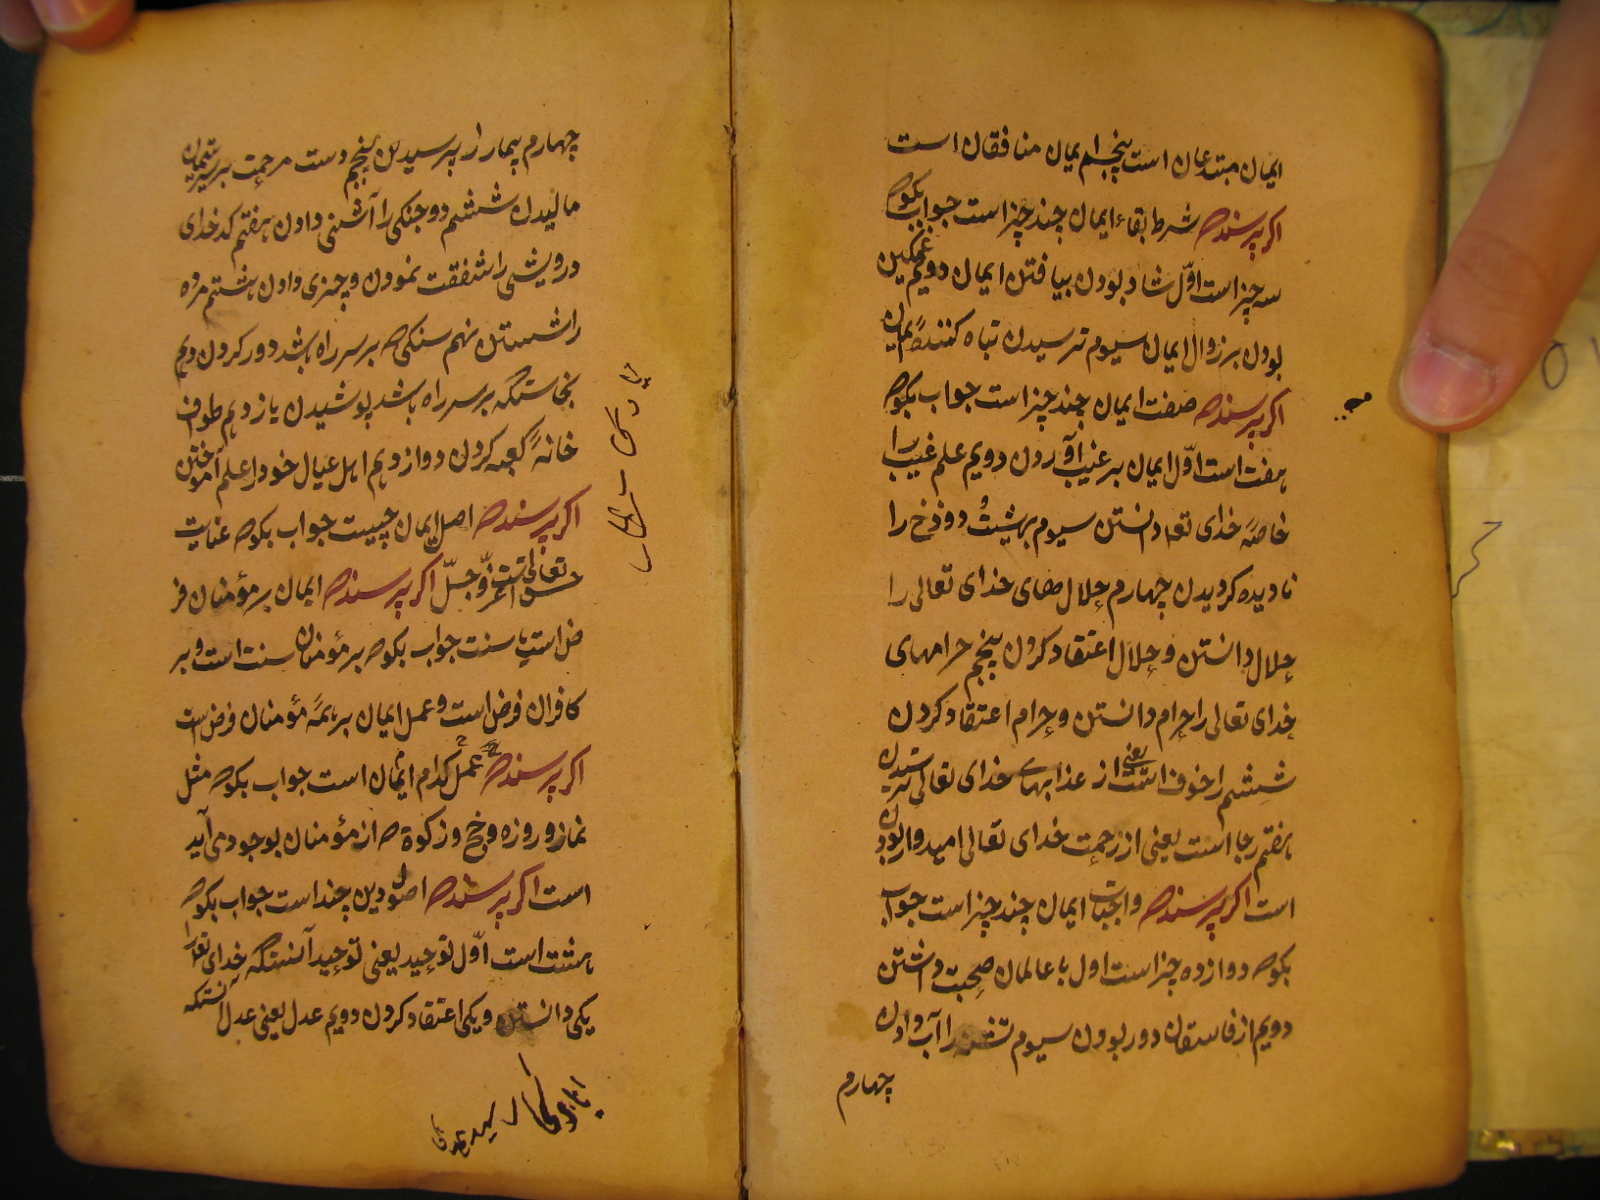 ایمان مبتدعان است پنجم ایمان منافقان است
اکر پرسند که شرط بقاء ایمان چند چیز است جواب بکو که
سه چیز است اوّل شاد بودن بیافتن ایمان دویم غمکین
بودن بر زوال ایمان سیوم ترسیدن تباه کنندهٔ ایمان
اکر پرسند که صفت ایمان چند چیز است جواب بکو که
هفت است اوّل ایمان بر غیب آوردن دویم علم غیب را
خاصهٔ خدای تعه دانستن سیوم بهشت و دوزخ را
نادیده کردیدن چهارم حلال های خدای تعالی را
حلال دانستن و حلال اعتقاد کردن پنجم حرامهای
خدای تعالی را حرام دانستن و حرام اعتقاد کردن
ششم را خوف است یعنی از عذابهای خدای تعالی ترسیدن
هفتم رجا است یعنی از رحمت خدای تعالی امیدوار بودن
است اکر پرسند که واجبات ایمان چند چیز است جواب
بکو که دوازده چیز است اول با عالمان صحبت داشتن
دویم از فاسقان دور بودن سیوم تشنه را آب دادن
چهارم
چهارم بیمار را پرسیدن پنجم دست مرحمت بر سر یتیمان
مالیدن ششم دو جنکی را آشتی دادن هفتم کدخدای
درویشی را شفقت نمودن و چیزی دادن هشتم مرده
را شستن نهم سنکی که بر سر راه باشد دور کردن دهم
نجاستکه بر سر راه باشد پوشیدن یازدهم طواف
خانهٔ کعبه کردن دوازدهم اهل عیال خود را علم آموختن
اکر پرسند که اصل ایمان چیست جواب بکو که عنایت
حق تعالی است عزّ و جلّ اکر پرسند که ایمان بر مؤمنان فر
ض است یا سنت جواب بکو که بر مؤمنان سنت است و بر
کافران فرض است و عمل ایمان بر همهٔ مؤمنان فرض است
اکر پرسند که عمل کدام ایمان است جواب بکو که مثل
نماز و روزه و حج و زکوة که از مؤمنان بوجود می آید
است اکر پرسند که اصول دین چند است جواب بکو که
هشت است اوّل توحید یعنی توحید آنستکه خدای تعه را
یکی دانستن و یکی اعتقاد کردن دویم عدل یعنی عدل آنستکه